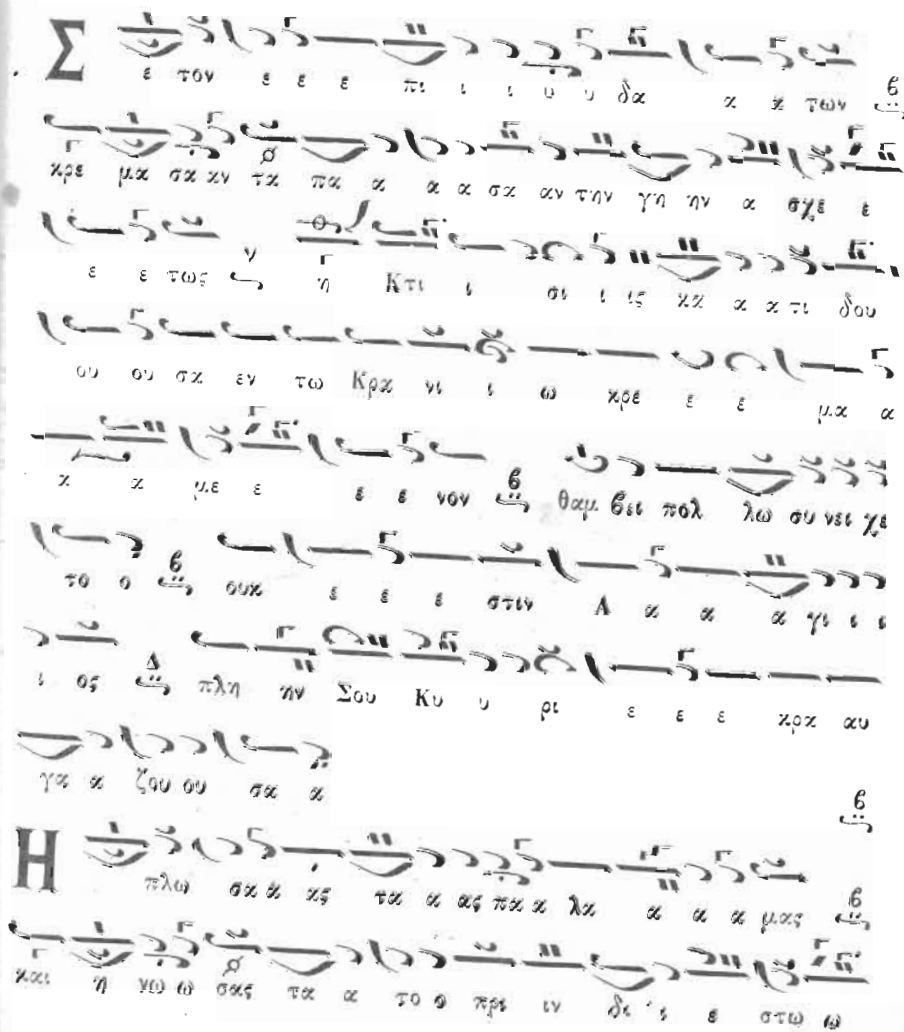 Σ ε τον ε ε ε πι ι ι υ υ δα α α των β
κρε μα σα αν τα πα α α α σα αν την γη ην α σχε ε
ε ε τως ν η Κτι ι σι ι ις κα α α τι δου
ου ου σα εν τω Κρα νι ι ω κρε ε ε μα α
α α με ε ε ε νον β θαμ βει πολ λω συ νει χε
το ο β ουκ ε ε ε στιν Α α α α γι ι ι
ι ος Δ πλη ην Σου Κυ υ ρι ε ε ε κρα αυ
γα α ζου ου σα α
β
Η πλω σα α ας τα α ας πα α λα α α α μας β
και η νω ω σας τα α το ο πρι ιν δι ι ε στω ω